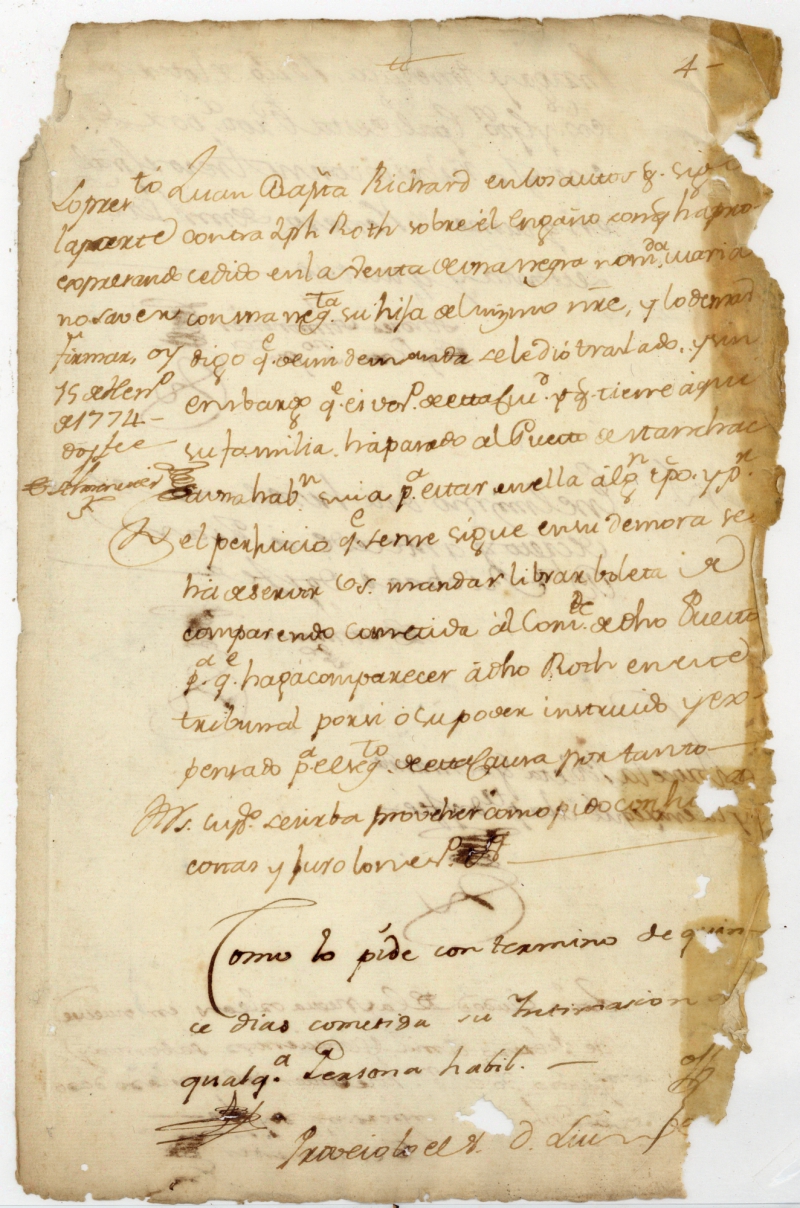 4
Lopres.to
la parte
expresando
no saver
firmar, oy
15 de Hen.o
de 1774
doy fee
Juan Bap.ta Richard en los autos q.e sigo
contra Jph Roth sobre el engaño con q.e ha pro-
cedido en la Venta de una negra nom.da Maria
con una neg.ta su hija del mismo n̄re, y lo demas
digo q.e de mi demanda se le dió traslado, y sin
embargo q.e es vez.o de esta Ciu.d y q.e tiene aqui
su familia, há pasado al Puerto de Manchac
a una hab.n suia p.a estar en ella alg.n tpo. y p.r
el perjuicio q.e se me sigue en su demora se
ha de servir Vs. mandar librar boleta de
comparendo cometida al Com.te de dho Puerto
p.a q.e haga comparecer à dho Roth en este
tribunal por si ò su poder instruido y ex-
pensado p.a el seg.to de esta Causa por tanto
A Vs. sup.co se sirba provéher como pido con
costas y Juro lo nes.o
Como lo pide con termino de quin-
ce dias cometida su Intimasion a
qualq.a Persona habil.
Proveiolo el S. D. Luis